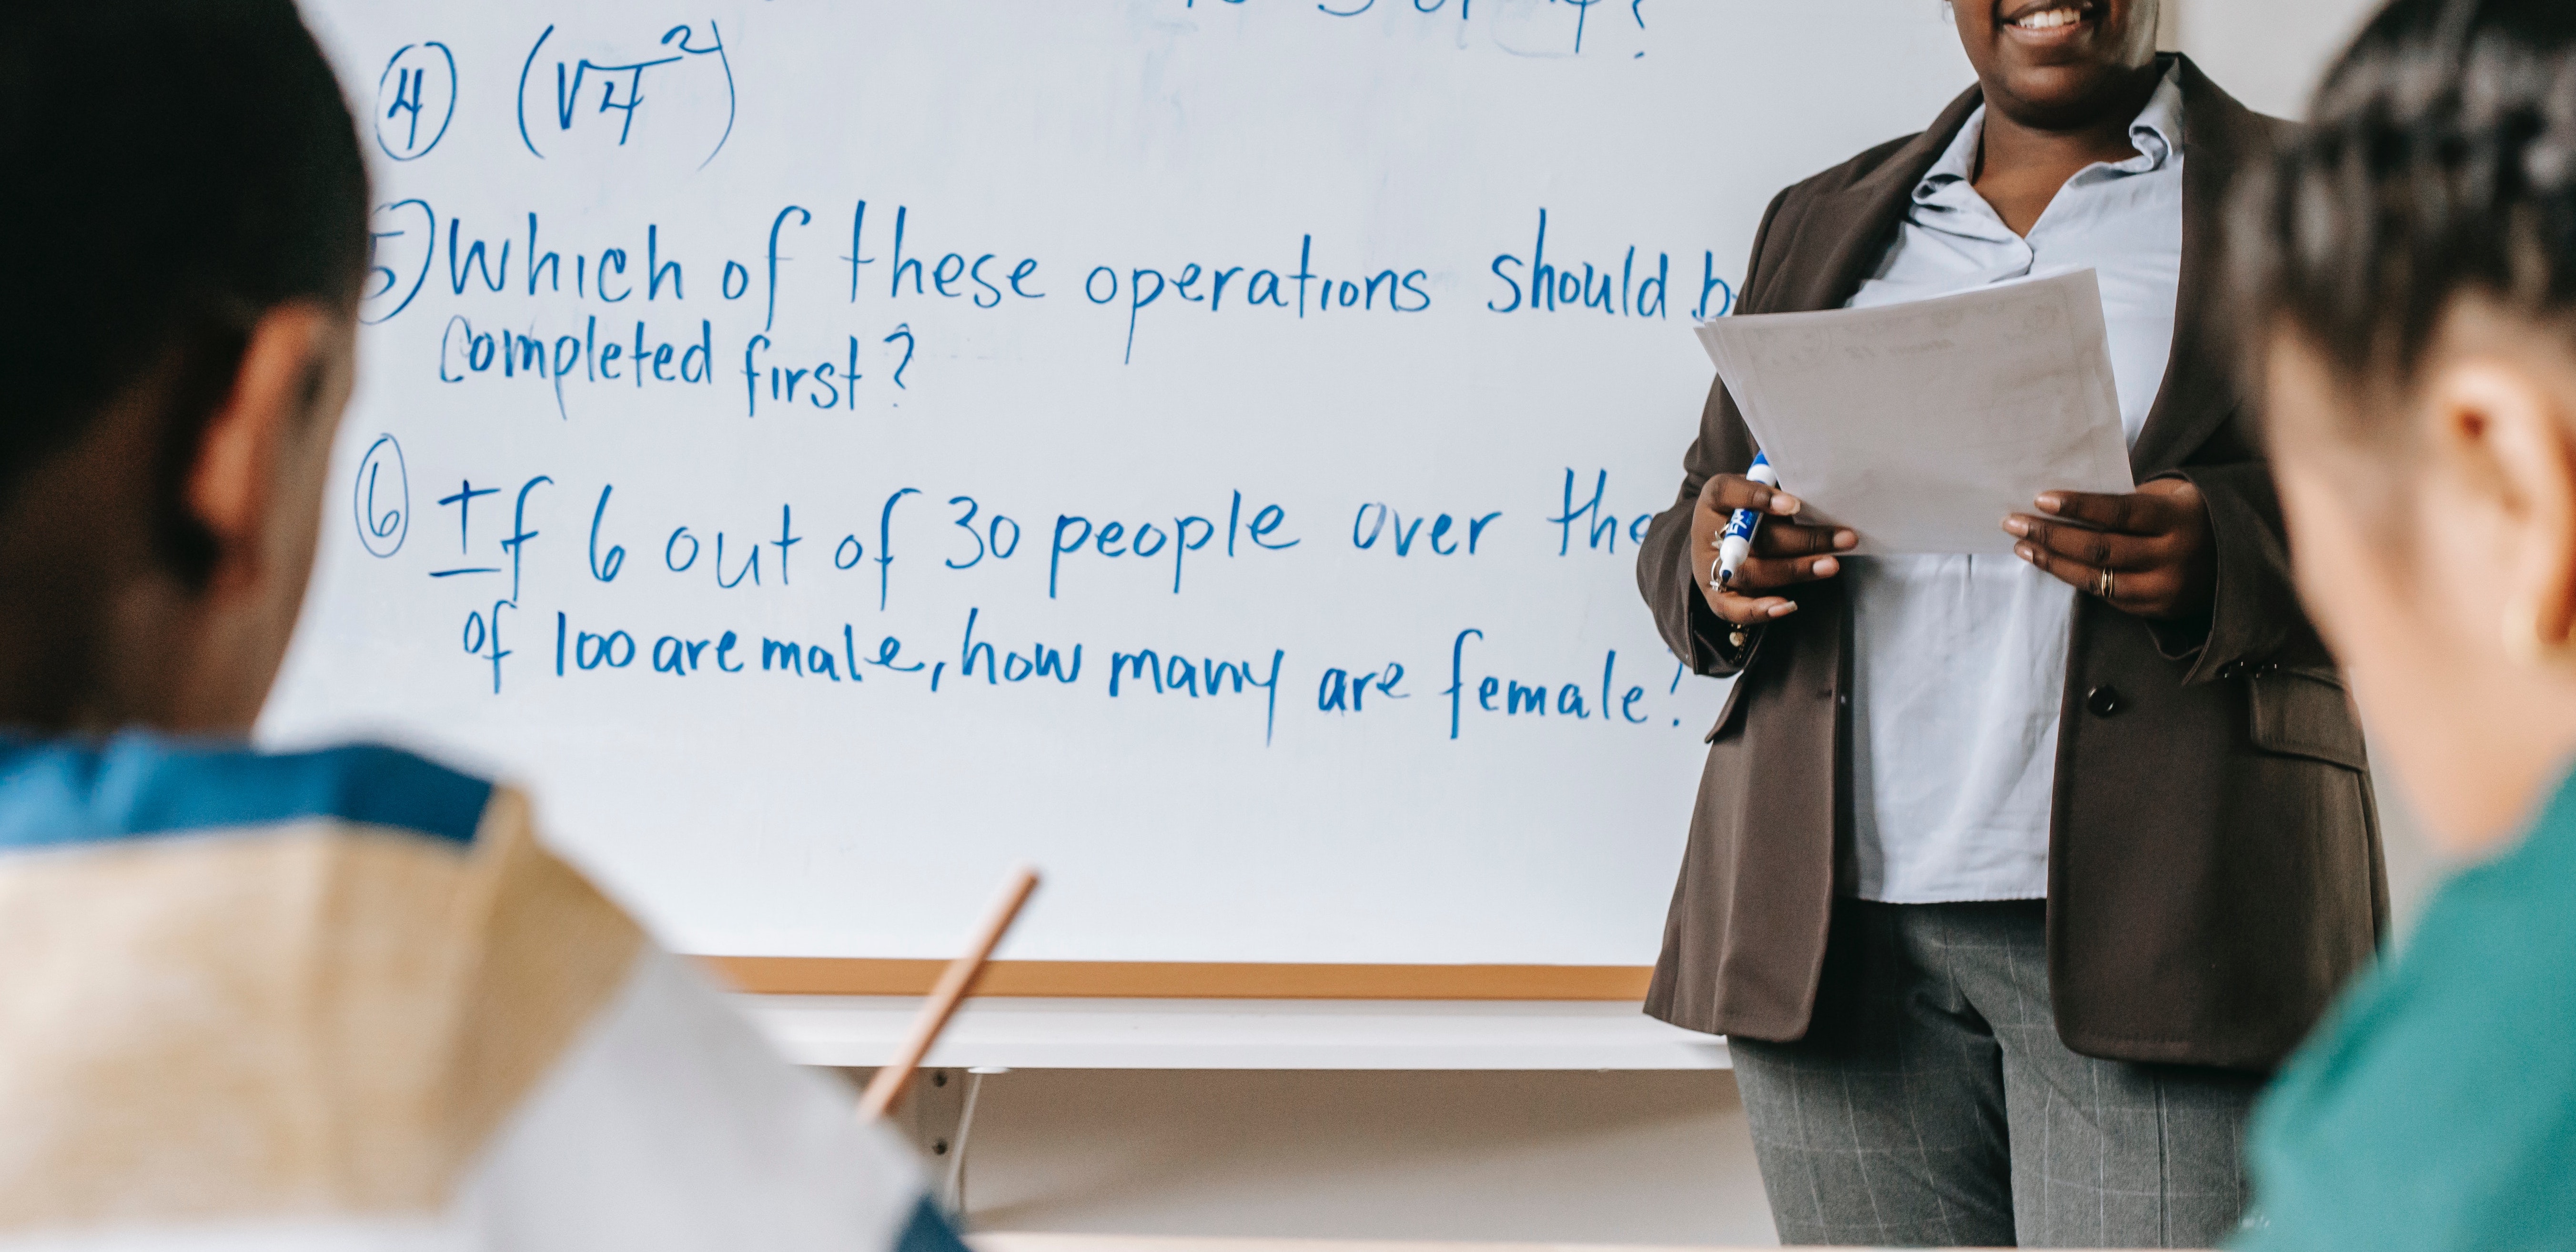 ④ (√4²)
5) Which of these operations should
completed first?
⑥ If 6 out of 30 people over the
of 100 are male, how many are female?